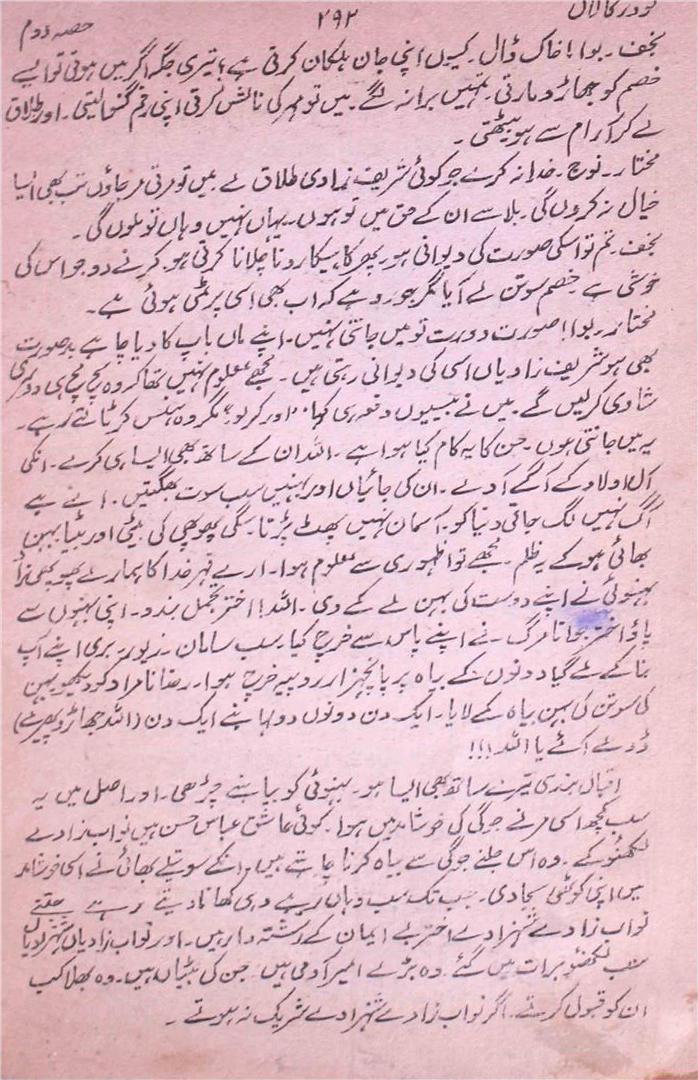 گودر کا لال ۲۹۲ حصہ دوم
نجف۔ بوا! خاک ڈال۔ کیوں اپنی جان ہلکان کرتی ہے؛ تیری جگہ اگر میں ہوتی تو ایسے
خصم کو جھاڑو مارتی۔ تمہیں برا نہ لگے۔ میں تو مہر کی نالش کرتی اپنی رقم گنوا لیتی۔ اور طلاق
لے کر آرام سے ہو بیٹھتی۔
مختار۔ نوج۔ خدا نہ کرے جو کوئی شریف زادی طلاق لے۔ میں تو مرتی مر جاؤں تب بھی ایسا
خیال نہ کروں گی۔ بلا سے ان کے حق میں تو ہوں۔ یہاں نہیں وہاں تو ملوں گی۔
نجف۔ تم تو اسکی صورت کی دیوانی ہو۔ پھر کاہیکا رونا چلانا کرتی ہو۔ کرنے دو جو اس کی
خوشی ہے۔ خصم سوتن لے آیا مگر جورو ہے کہ اب بھی اسی پر مٹی ہوئی ہے۔
مختار۔ بوا! صورت دورت تو میں جانتی نہیں۔ اپنے ماں باپ کا دیا چاہے بدصورت
بھی ہو شریف زادیاں اسی کی دیوانی رہتی ہیں۔ مجھے معلوم نہیں تھا کہ وہ سچ مچ ہی دوسری
شادی کر لیں گے۔ میں نے بیسیوں دفعہ ہی کہا "اور کر لو" مگر وہ ہنس کر ٹالتے رہے۔
یہ میں جانتی ہوں۔ جن کا یہ کام کیا ہوا ہے۔ اللہ ان کے ساتھ بھی ایسا ہی کرے۔ انکی
آل اولاد کے آگے آوے۔ ان کی جائیاں اور بہنیں سب سوت بھگتیں۔ اے ہے
آگ نہیں لگ جاتی دنیا کو۔ آسمان نہیں پھٹ پڑتا۔ سگی پھوپھی کی بیٹی اور بیٹا بہن
بھائی ہو کے یہ ظلم۔ مجھے تو اظہوری سے معلوم ہوا۔ ارے قہر خدا کا ہمارے پھوپھی زاد
بہنوئی نے اپنے دوست کی بہن لے کے دی۔ اللہ! اختر تجمل بندو۔ اپنی بہنوں سے
پاؤ اختر جوانا مرگ۔ نے اپنے پاس سے خرچ کیا۔ سب سامان۔ زیور۔ بری اپنے آپ
بنا کے لے گیا دونوں کے بیاہ پر پانچہزار روپیہ خرچ ہوا۔ رضا نامراد کو دیکھیو بہن
کی سوتن کی بہن بیاہ کے لایا۔ ایک دن دونوں دولہا بنے ایک دن (اللہ جھاڑو پھیرے)
ڈولے آئے یا اللہ!!!
اقبال بندی تیرے ساتھ بھی ایسا ہو۔ بہنوئی کو بیاہنے چڑھی۔ اور اصل میں یہ
سب کچھ اسی مرنے جوگی کی خوشامد میں ہوا۔ کوئی عاشق عباس حسن ہیں نواب زادے
لکھنؤ کے۔ وہ اس جلنے جوگی سے بیاہ کرنا چاہتے ہیں۔ انکے سوتیلے بھائی نے اسی خوشامد
میں اپنی کوٹھی سجا دی۔ جب تک سب وہاں رہے وہی کھانا دیتے رہے۔ جتنے
نواب زادے شہزادے اختر بے ایمان کے رشتہ دار ہیں۔ اور نواب زادیاں شہزادیاں
سب لکھنؤ برات میں گئے۔ وہ بڑے امیر آدمی ہیں۔ جن کی بیٹیاں ہیں۔ وہ بھلا کب
ان کو قبول کرتے۔ اگر نواب زادے شہزادے شریک نہ ہوتے۔